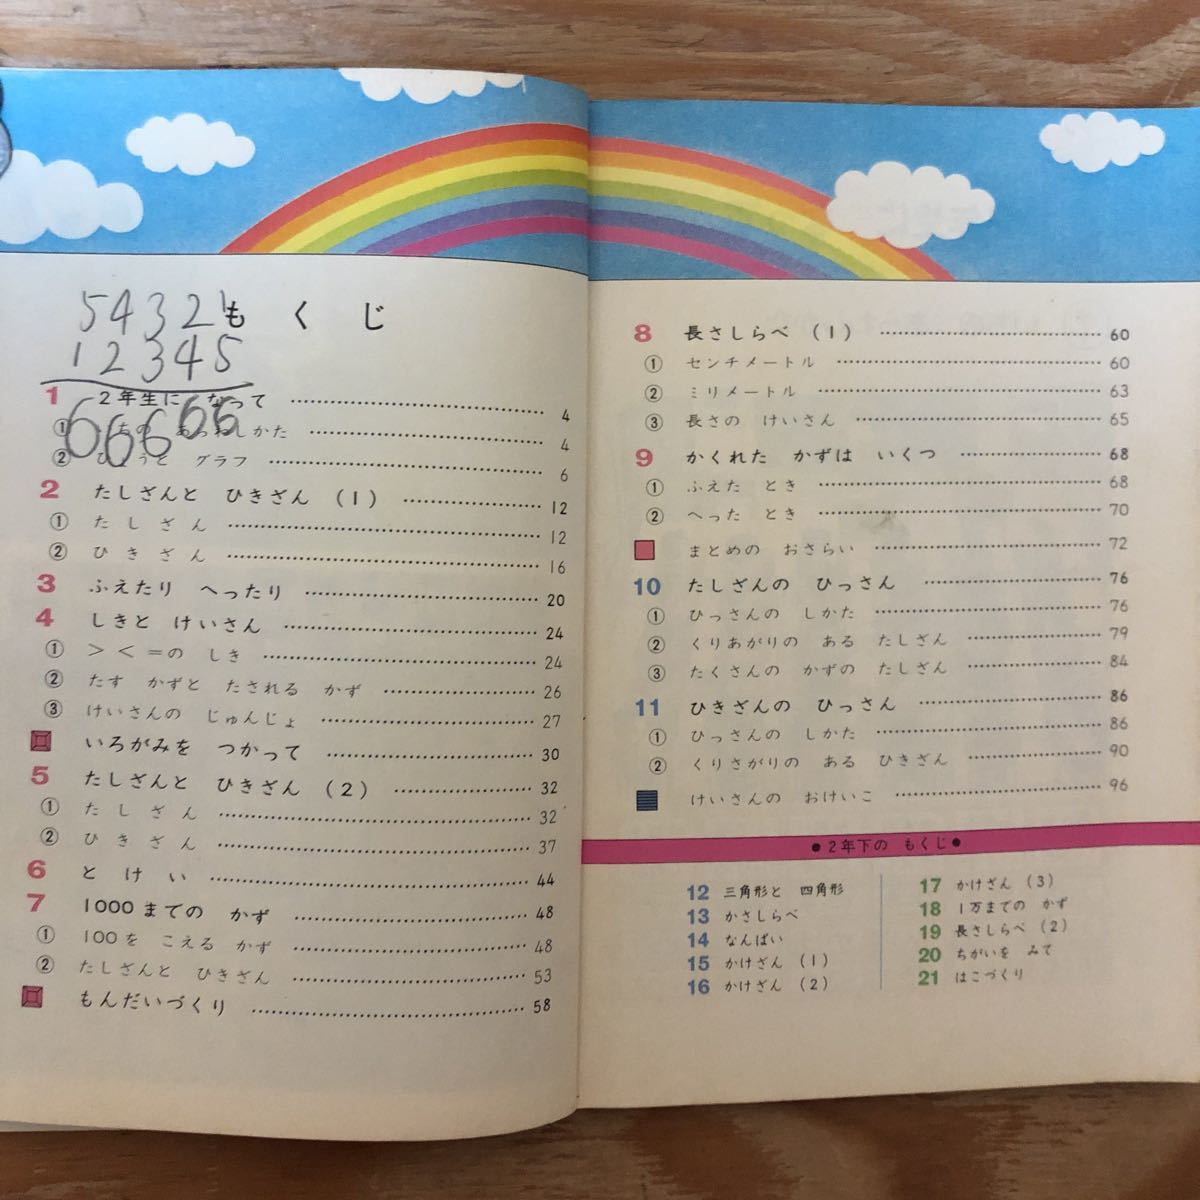 54321
もくじ
12345
66666
1 2年生に なって 4
① かた 4
② グラフ 6
2 たしざんと ひきざん (1) 12
① たしざん 12
② ひきざん 16
3 ふえたり へったり 20
4 しきと けいさん 24
① > < =の しき 24
② たす かずと たされる かず 26
③ けいさんの じゅんじょ 27
いろがみを つかって 30
5 たしざんと ひきざん (2) 32
① たしざん 32
② ひきざん 37
6 とけい 44
7 1000までの かず 48
① 100を こえる かず 48
② たしざんと ひきざん 53
もんだいづくり 58
8 長さしらべ (1) 60
① センチメートル 60
② ミリメートル 63
③ 長さの けいさん 65
9 かくれた かずは いくつ 68
① ふえた とき 68
② へった とき 70
まとめの おさらい 72
10 たしざんの ひっさん 76
① ひっさんの しかた 76
② くりあがりの ある たしざん 79
③ たくさんの かずの たしざん 84
11 ひきざんの ひっさん 86
① ひっさんの しかた 86
② くりさがりの ある ひきざん 90
けいさんの おけいこ 96
●2年下の もくじ●
12 三角形と 四角形
13 かさしらべ
14 なんばい
15 かけざん (1)
16 かけざん (2)
17 かけざん (3)
18 1万までの かず
19 長さしらべ (2)
20 ちがいを みて
21 はこづくり